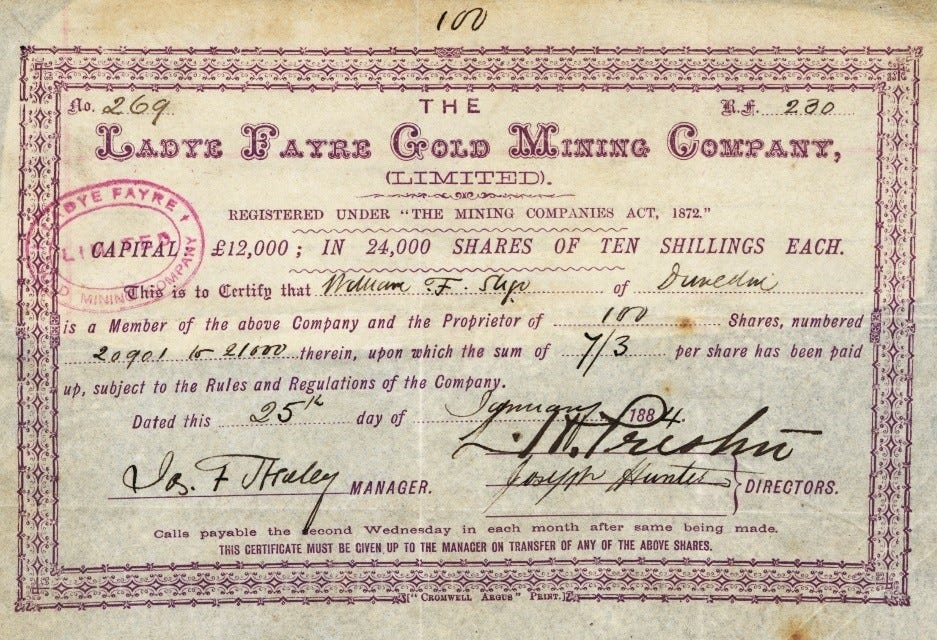 100
No. 269 THE R.F. 230
LADYE FAYRE GOLD MINING COMPANY,
(LIMITED).
REGISTERED UNDER "THE MINING COMPANIES ACT, 1872."
CAPITAL £12,000; IN 24,000 SHARES OF TEN SHILLINGS EACH.
This is to Certify that William F. Sligo of Dunedin
is a Member of the above Company and the Proprietor of 100 Shares, numbered
20901 to 21000 therein, upon which the sum of 7/3 per share has been paid
up, subject to the Rules and Regulations of the Company.
Dated this 25th day of January 1884
Jos. F MANAGER.
Joseph Hunter DIRECTORS.
Calls payable the second Wednesday in each month after same being made.
THIS CERTIFICATE MUST BE GIVEN UP TO THE MANAGER ON TRANSFER OF ANY OF THE ABOVE SHARES.
"CROMWELL ARGUS" PRINT.
FAYRE
MINING COMPANY